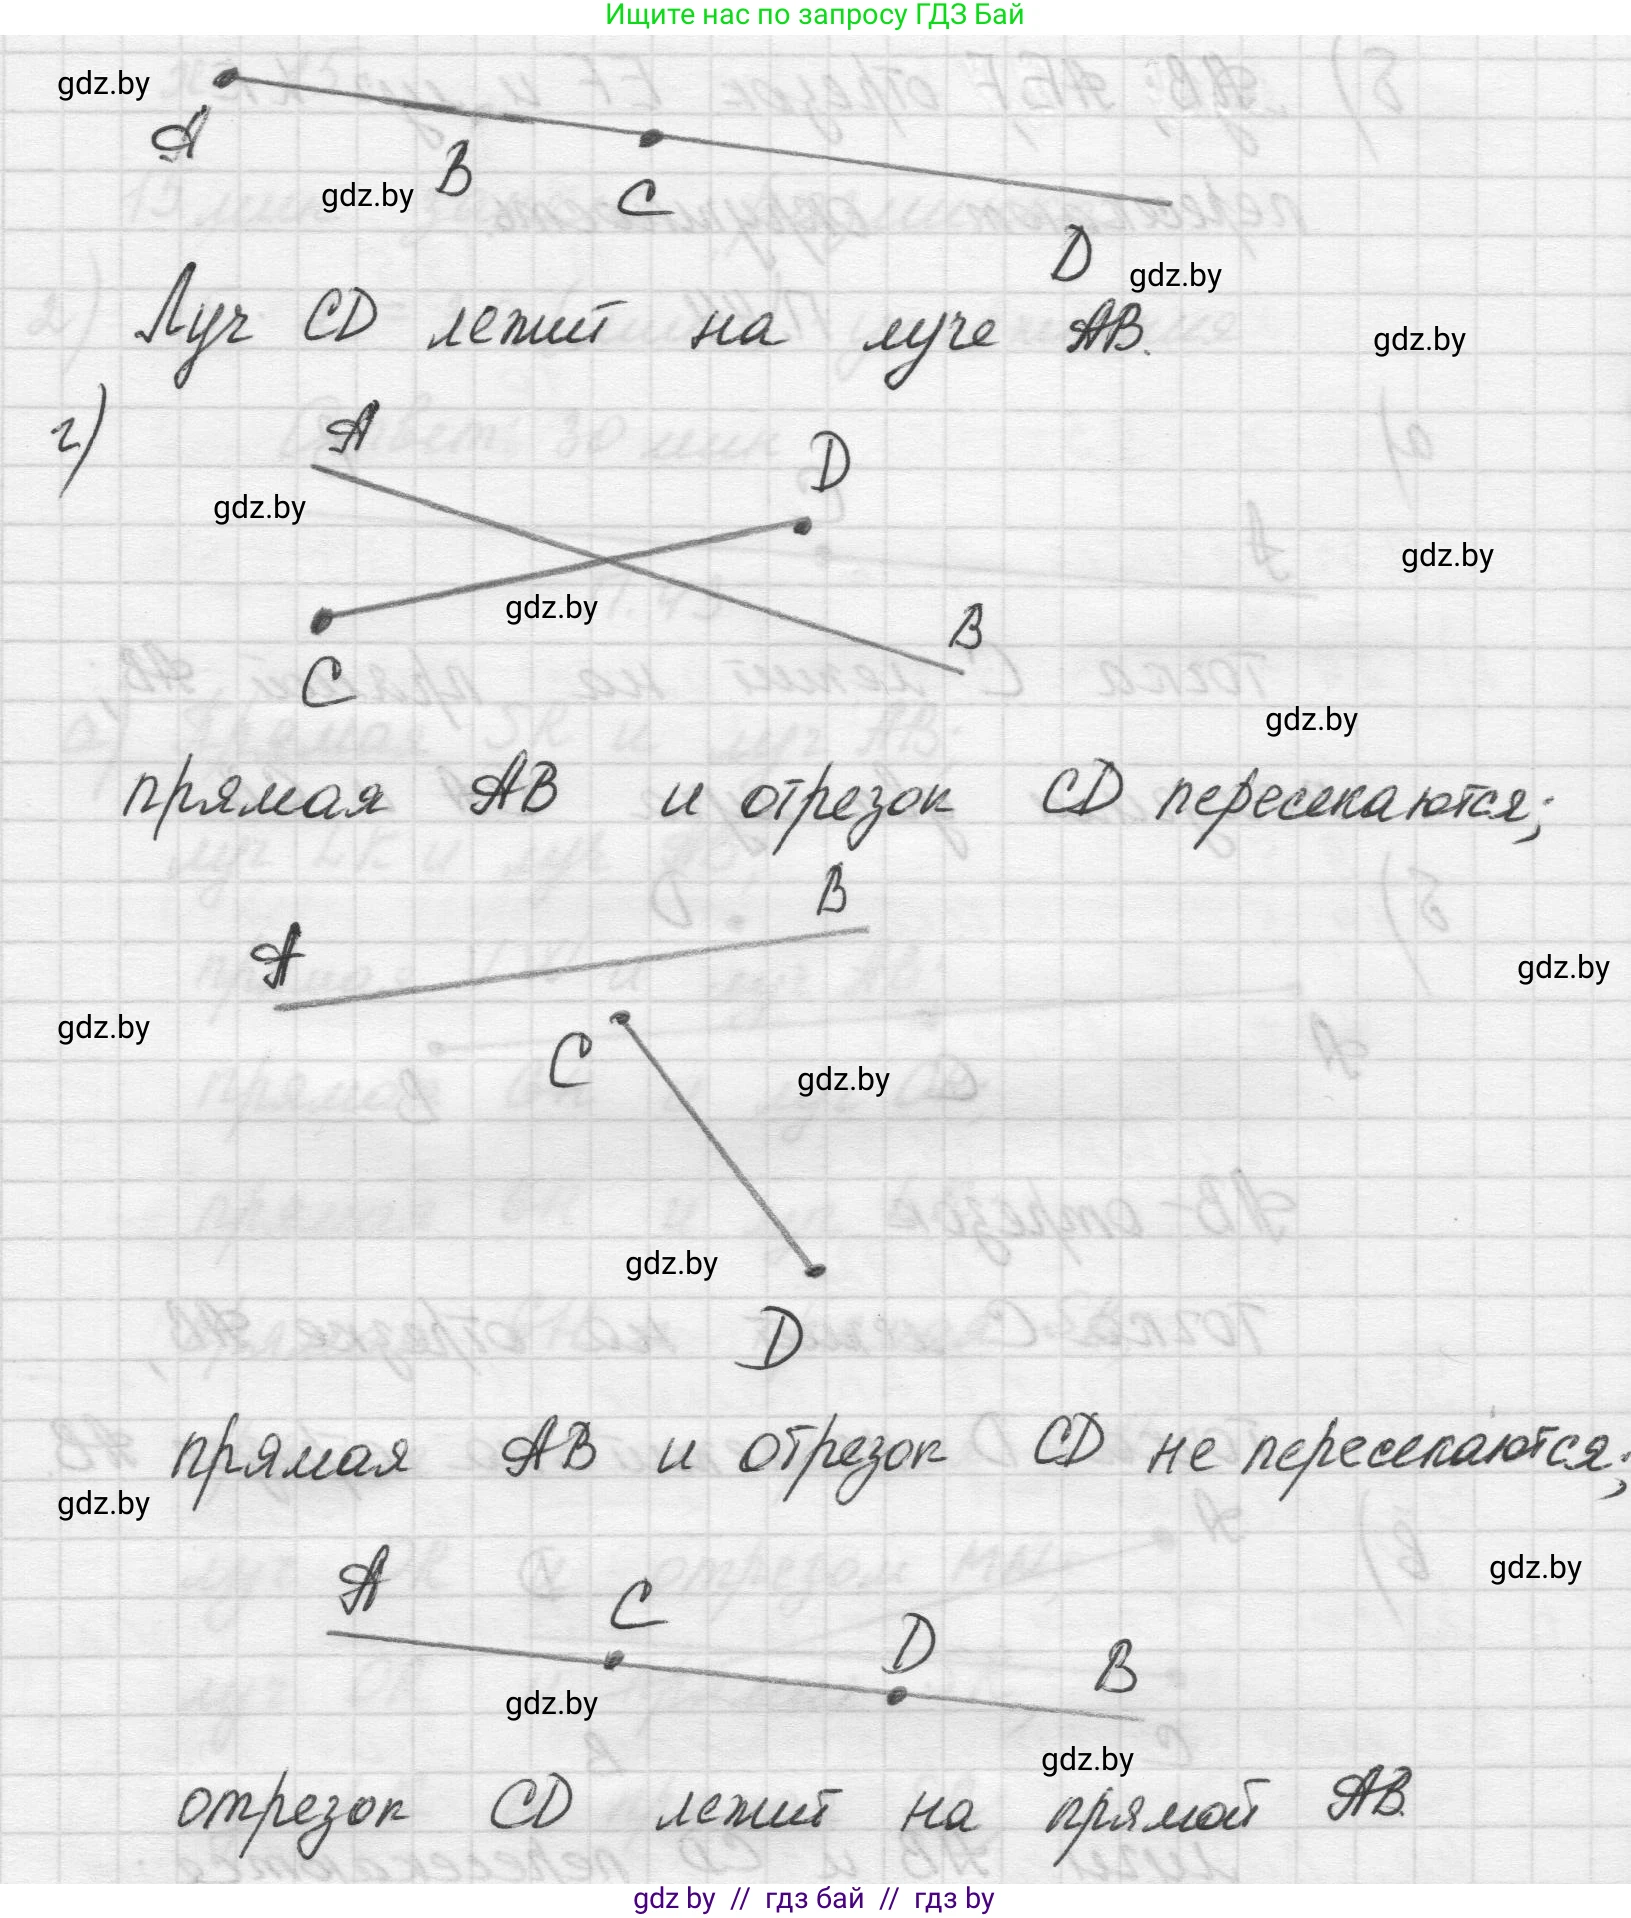 Ищите нас по запросу ГДЗ Бай
gdz.by
A
B
gdz.by
C
D
gdz.by
Луч CD лежит на луче AB.
gdz.by
г)
A
D
gdz.by
gdz.by
gdz.by
B
C
gdz.by
прямая AB и отрезок CD пересекаются;
B
A
gdz.by
gdz.by
C
gdz.by
gdz.by
D
прямая AB и отрезок CD не пересекаются;
gdz.by
A
C
gdz.by
D
B
gdz.by
gdz.by
отрезок CD лежит на прямой AB.
gdz by // гдз бай // гдз by